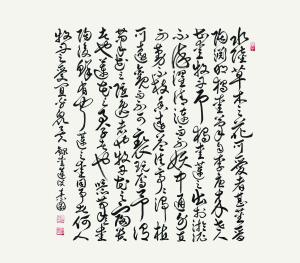 水陸草木之花可愛者甚蕃晉
陶淵明獨愛菊自李唐來世人
甚愛牡丹予獨愛蓮之出淤泥而
不染濯清漣而不妖中通外直
不蔓不枝香遠益清亭亭淨植
可遠觀而不可褻玩焉予謂
菊花之隱逸者也牡丹花之富貴
者也蓮花之君子者也噫菊之愛
陶後鮮有聞蓮之愛同予者何人
牡丹之愛宜乎眾矣 愛蓮說